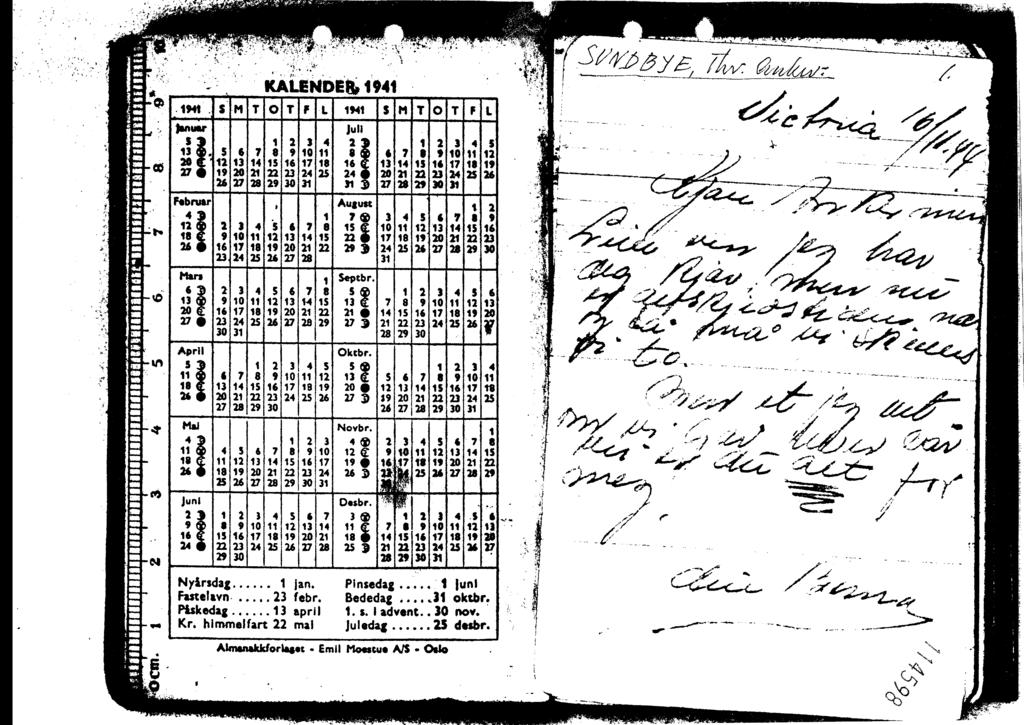 KALENDER, 1941
1941 S M T O T F L
Januar
5 13 20 27
1 2 3 4
5 6 7 8 9 10 11
12 13 14 15 16 17 18
19 20 21 22 23 24 25
26 27 28 29 30 31
Februar
4 12 18 26
1
2 3 4 5 6 7 8
9 10 11 12 13 14 15
16 17 18 19 20 21 22
23 24 25 26 27 28
Mars
6 13 20 27
1
2 3 4 5 6 7 8
9 10 11 12 13 14 15
16 17 18 19 20 21 22
23 24 25 26 27 28 29
30 31
April
5 11 18 26
1 2 3 4 5
6 7 8 9 10 11 12
13 14 15 16 17 18 19
20 21 22 23 24 25 26
27 28 29 30
Mai
4 11 18 26
1 2 3
4 5 6 7 8 9 10
11 12 13 14 15 16 17
18 19 20 21 22 23 24
25 26 27 28 29 30 31
Juni
2 9 16 24
1 2 3 4 5 6 7
8 9 10 11 12 13 14
15 16 17 18 19 20 21
22 23 24 25 26 27 28
29 30
1941 S M T O T F L
Juli
2 8 16 24 31
1 2 3 4 5
6 7 8 9 10 11 12
13 14 15 16 17 18 19
20 21 22 23 24 25 26
27 28 29 30 31
August
7 15 22 29
1 2
3 4 5 6 7 8 9
10 11 12 13 14 15 16
17 18 19 20 21 22 23
24 25 26 27 28 29 30
31
Septbr.
5 13 21 27
1 2 3 4 5 6
7 8 9 10 11 12 13
14 15 16 17 18 19 20
21 22 23 24 25 26 27
28 29 30
Oktbr.
5 13 20 27
1 2 3 4
5 6 7 8 9 10 11
12 13 14 15 16 17 18
19 20 21 22 23 24 25
26 27 28 29 30 31
Novbr.
4 12 19 26
1
2 3 4 5 6 7 8
9 10 11 12 13 14 15
16 17 18 19 20 21 22
23 24 25 26 27 28 29
30
Desbr.
3 11 18 25
1 2 3 4 5 6
7 8 9 10 11 12 13
14 15 16 17 18 19 20
21 22 23 24 25 26 27
28 29 30 31
Nyårsdag...... 1 jan.
Fastelavn ...... 23 febr.
Påskedag ...... 13 april
Kr. himmelfart 22 mai
Pinsedag ..... 1 juni
Bededag ..... 31 oktbr.
1. s. i advent.. 30 nov.
Juledag ...... 25 desbr.
Almanakkforlaget - Emil Moestue A/S - Oslo
0cm. 1 2 3 4 5 6 7 8 9 10
SUNDBYE, Thv. Anker: 1.
Victoria 16/11.44
Kjære Anker min
Lille ven jeg har
deg kjær, men nu
er avskjedstiden nær
og så må vi skilles
vi to.
Men et jeg vet
om vi her lever bær
blir er du alt for
meg.
Bessa
114598